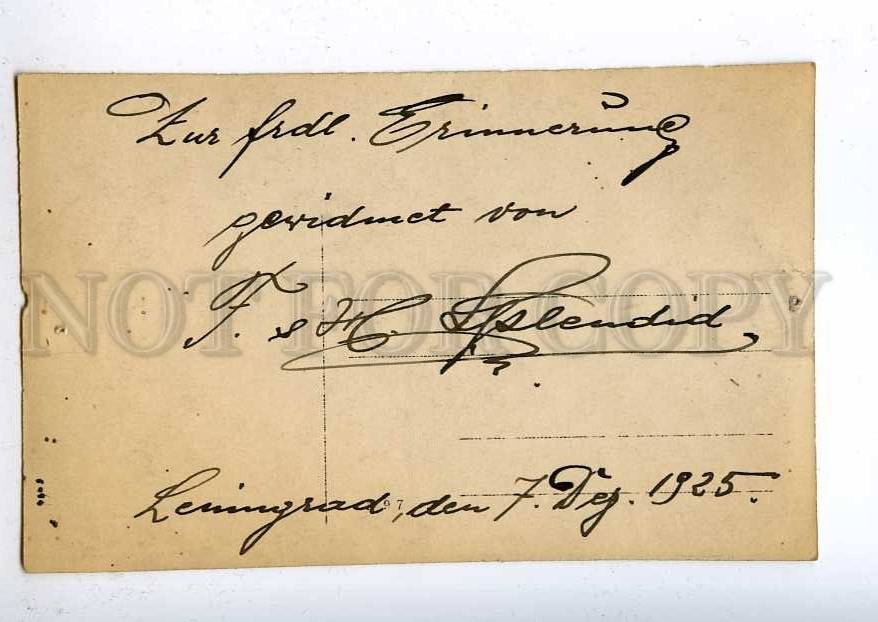 Zur frdl. Erinnerung
gewidmet von
F. & H. Splendid
Leningrad, den 7. Dez. 1925.
NOT FOR COPY